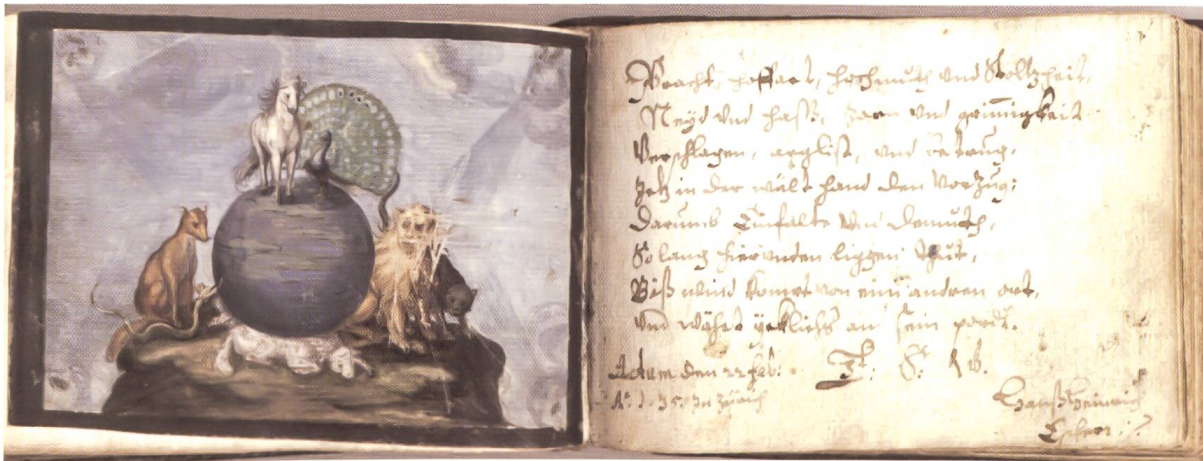 Pracht, Hoffart, Hochmuth vnd Stoltzheit,
Neyd vnd Hass, Zorn vnd grim̄igkeit
Verschlagen, arglist, vnd betrug,
Jetz in der wält hand den Vorzug:
Darumb Einfalt vnd Demuth,
So lang hierunden liggen thut,
Biß wind komt von eim andren ort,
vnd wäht yettlichs an sein
Actum den 22 feb: T. S.
A° in Zürich Hanß Heinrich
Escher